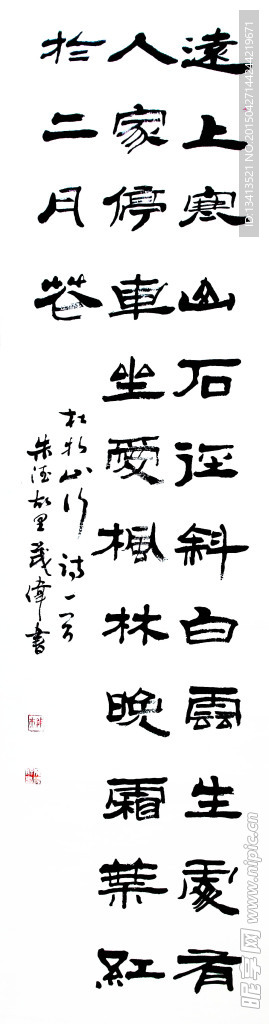 遠上寒山石径斜白雲生處有
人家停車坐愛楓林晚霜葉紅
於二月花
杜牧山行詩一首
朱德故里茂偉書
ID:13413521 NO:20150427144244219671
昵享网 www.nipic.cn